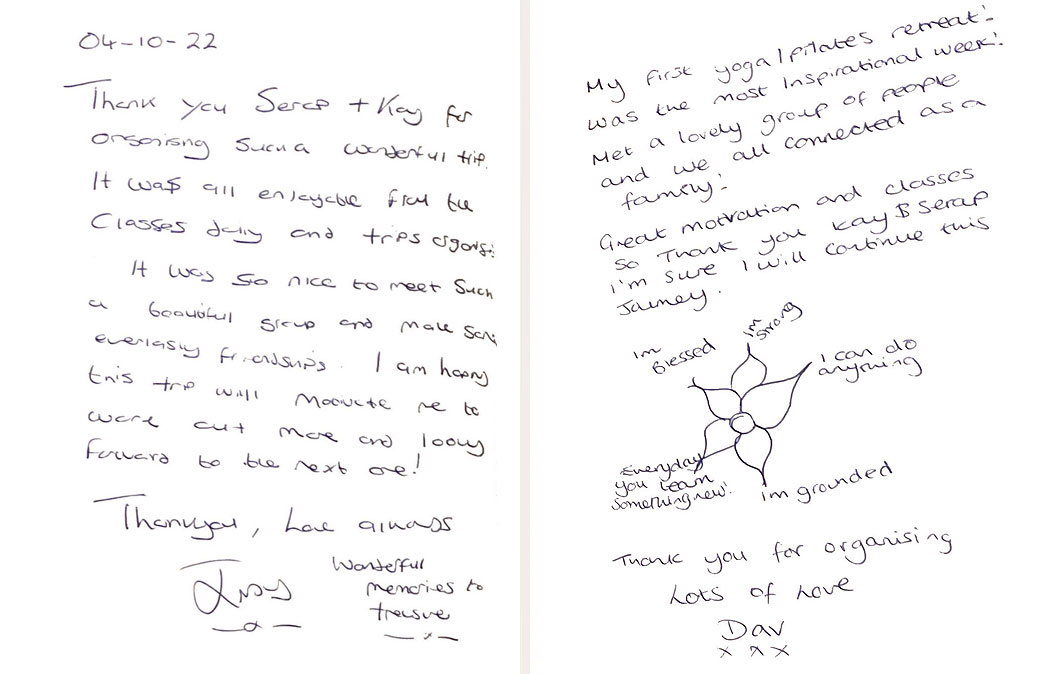 04-10-22
Thank you Serap + Kay for
organising such a wonderful trip.
It was all enjoyable from the
classes daily and trips
It was so nice to meet such
a beautiful group and make some
everlasting friendships. I am happy
this trip will motivate me to
work out more and looking
forward to the next one!
Thankyou, Love always
Wonderful
memories to
treasure
My first yoga/pilates retreat!
was the most Inspirational week!
Met a lovely group of people
and we all connected as a
family!
Great motivation and classes
so Thank you Kay & Serap
I'm sure I will continue this
Journey.
Im
Blessed
im
strong
I can do
anything
Everyday
you learn
something new!
im grounded
Thank you for organising
Lots of Love
Dav
x x x